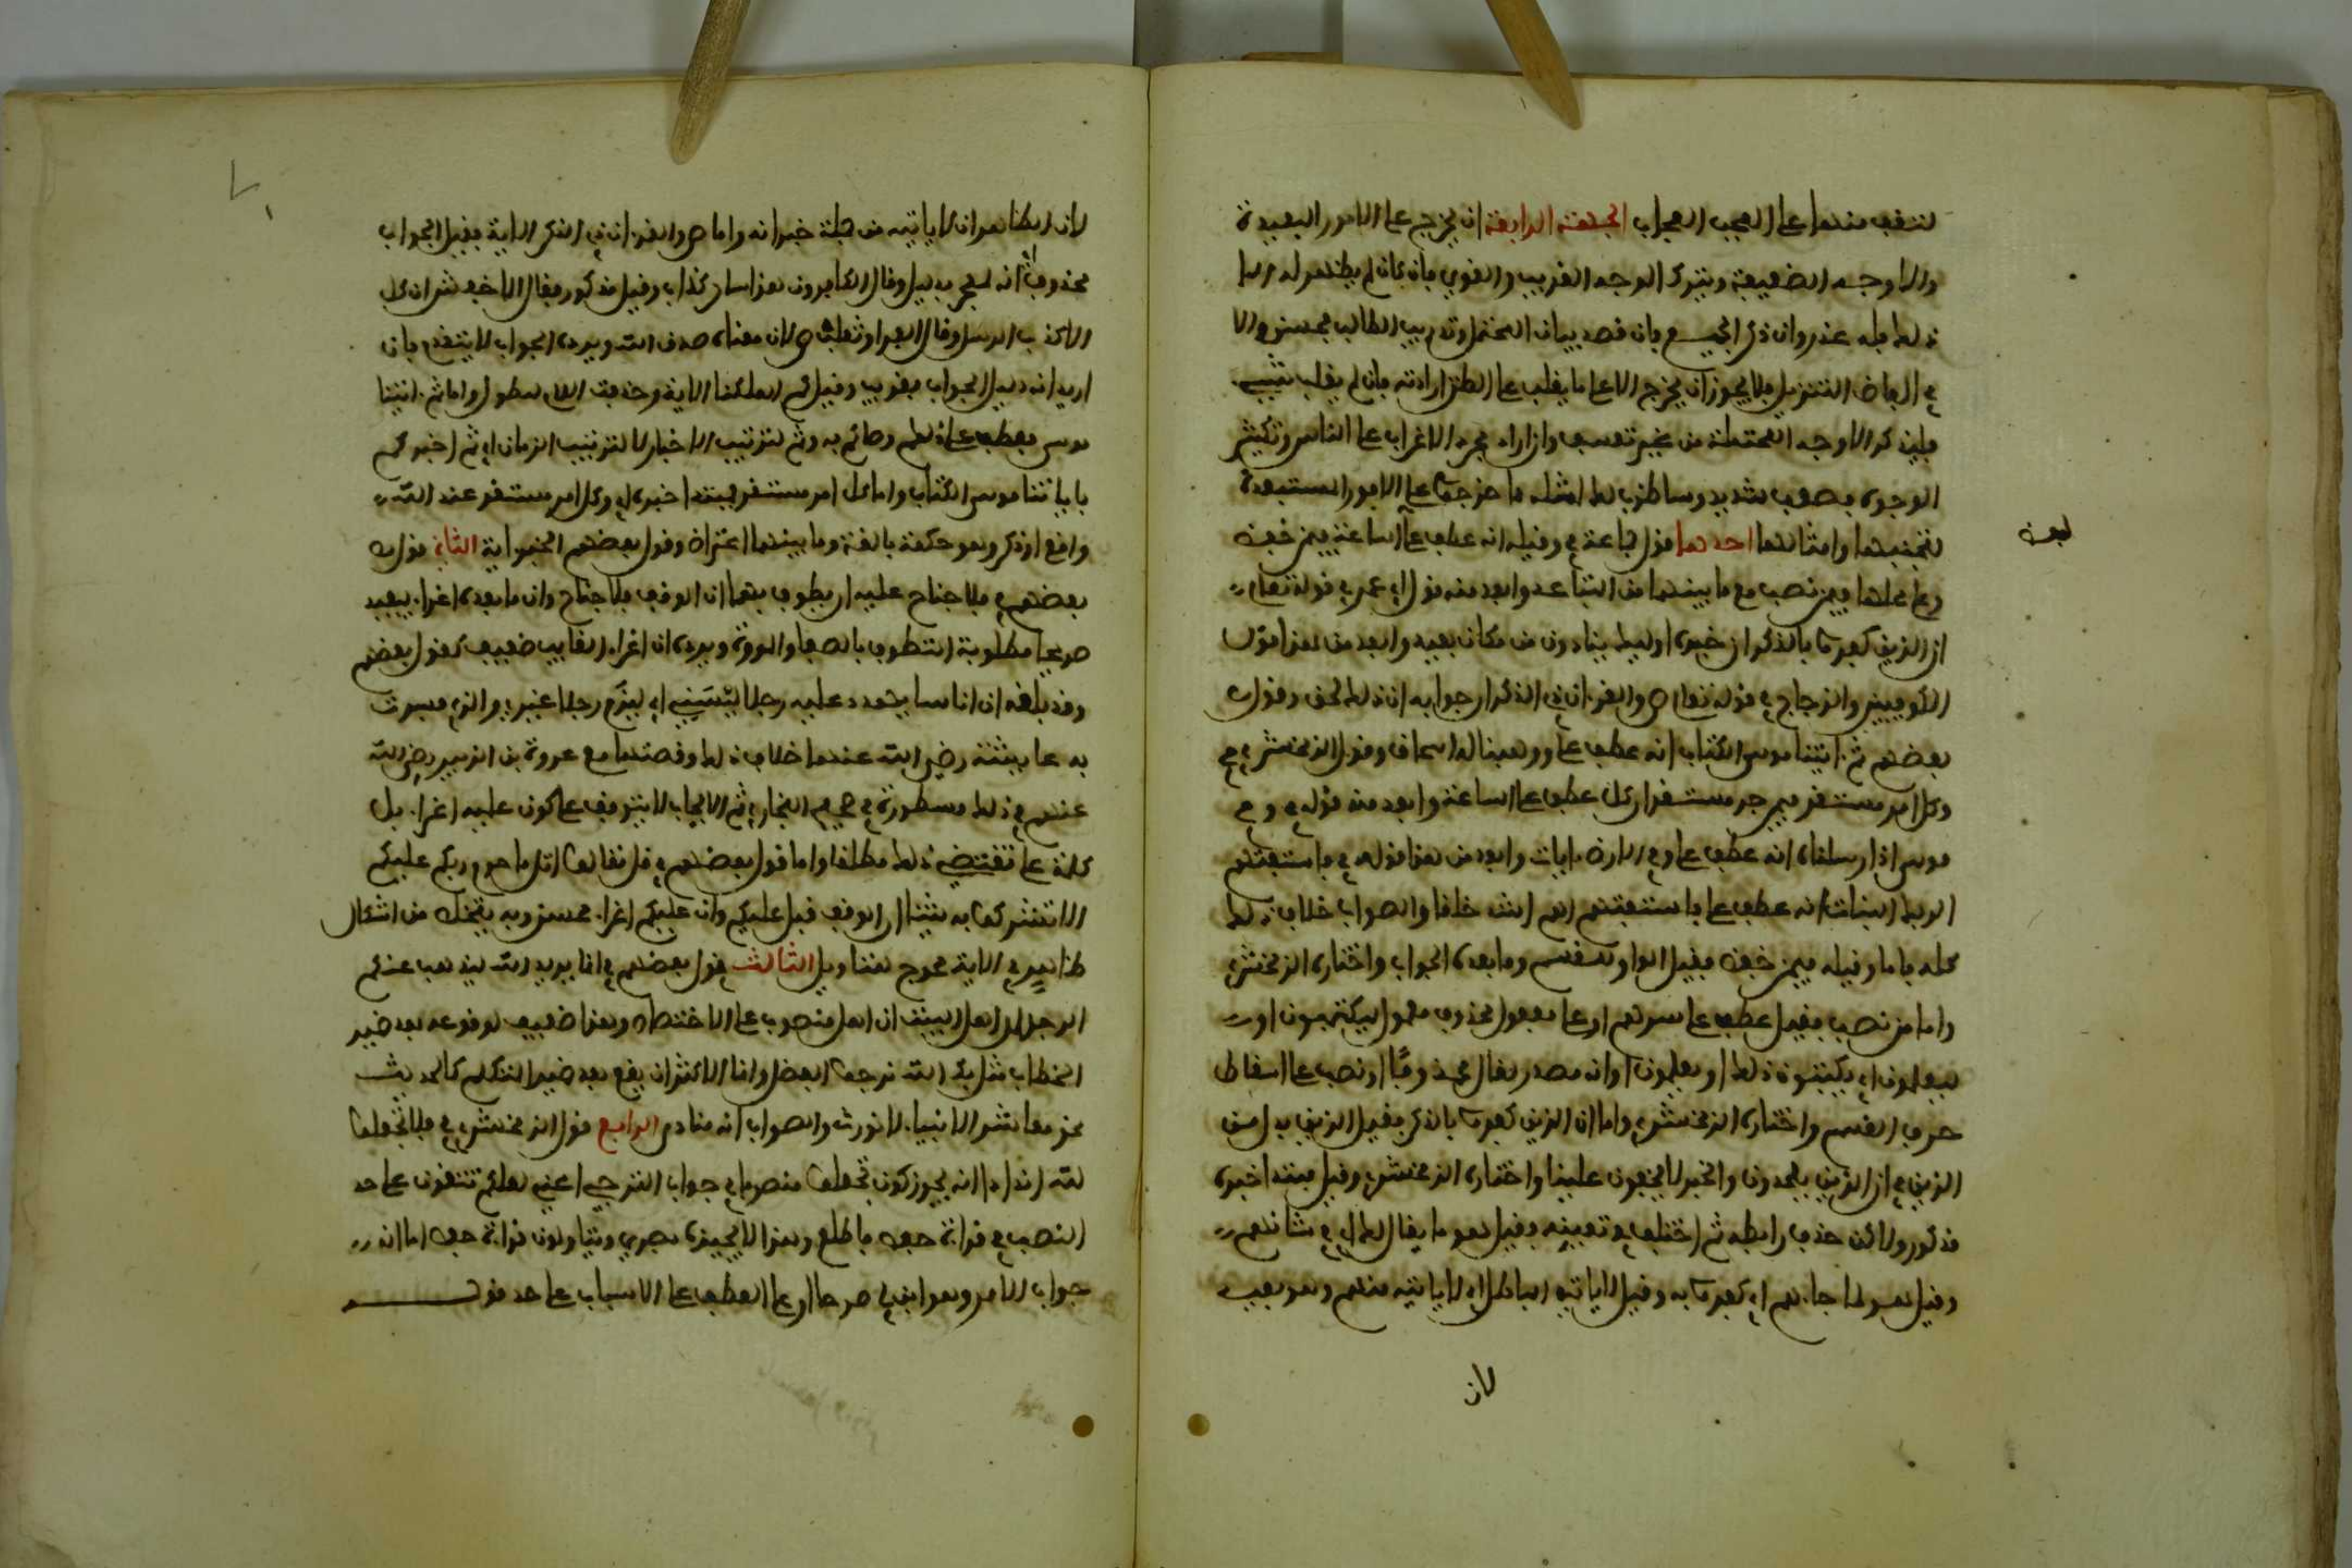 لتقف منها على العجب العجاب الجهة الرابعة ان يخرج على الامور البعيدة
والاوجه الضعيفة ويترك الوجه القريب والقوي فان كان لم يظهر له الا
ذلك فله عذر وان ذكر الجميع فان قصد بيان المحتمل وتدريب الطالب فحسن الا
في الفاظ التنزيل فلا يجوز ان يخرج الا على ما يغلب على الظن ارادته فان لم يغلب شيء
فليذكر الاوجه المحتملة من غير تعسف وان اراد مجرد الاغراب على الناس وتكثير
الوجوه فصعب شديد وساضرب لك امثلة مما خرجوه على الامور المستبعدة
لتجتنبها وامثالها احدها قول جماعة في وقيله انه عطف على الساعة فيمن خفض
لفظ
وعلى محلها فيمن نصب مع ما بينهما من التباعد وابعد منه قول ابي عمرو في قوله تعالى
ان الذين كفروا بالذكر ان خبره اولئك ينادون من مكان بعيد وابعد من هذا قول
الكوفيين والزجاج في قوله تعالى ص والقرءان ذي الذكر ان جوابه ان ذلك لحق وقول
بعضهم ثم ءاتينا موسى الكتاب انه عطف على ووهبنا له اسحاق وقول الزمخشري في
وكل امر مستقر فيمن جر مستقر ان كل عطف على الساعة وابعد منه قوله في وفي
موسى اذ ارسلناه انه عطف على وفي الارض ءايات وابعد من هذا قوله في فاستفتهم
الربك البنات انه عطف على فاستفتهم اهم اشد خلقا والصواب خلاف ذلك
كله فاما وقيله فيمن خفض فقيل الواو للقسم وما بعده الجواب واختاره الزمخشري
واما من نصب فقيل عطف على سرهم او على مفعول محذوف معمول ليكتبون او
ليعلمون اي يكتبون ذلك او يعلمون او انه مصدر لقال محذوفا او نصب على اسقاط
حرف القسم واختاره الزمخشري واما ان الذين كفروا بالذكر فقيل الذين بدل من
الذين في ان الذين يلحدون والخبر لا يخفون علينا واختاره الزمخشري وقيل مبتدا خبره
مذكور ولاكن حذف رابطه ثم اختلف في تعيينه فقيل هو ما يقال لك اي في شانهم
وقيل هو لما جاءهم اي كفروا به وقيل لا ياتيه الباطل اي لا ياتيه منهم وهو بعيد
لان
لان الظاهر ان لا ياتيه من جملة خبر انه واما ص والقرءان ذي الذكر الاية فقيل الجواب
محذوف اي انه لمعجز بدليل وقال الكافرون هذا ساحر كذاب وقيل مذكور فقال الاخفش ان كل
الا كذب الرسل وقال الفراء وثعلب ص لان معناه صدق الله ويرده الجواب لا يتقدم فان
اريد انه دليل الجواب فقريب وقيل كم اهلكنا الاية وحذفت اللام للطول واما ثم ءاتينا
موسى فعطف على ذلكم وصاكم به وثم لترتيب الاخبار لا لترتيب الزمان اي ثم اخبركم
بانا ءاتينا موسى الكتاب واما كل امر مستقر فمبتدا خبره اي وكل امر مستقر عند الله
واقع او ذكر وهو حكمة بالغة وما بينهما اعتراض وقول بعضهم الخبر ءاية الثاني قول
بعضهم في فلا جناح عليه ان يطوف بهما ان الوقف فلا جناح وان ما بعده اغراء ليفيد
صريحا مطلوبية التطوف بالصفا والمروة ويرده ان اغراء الغايب ضعيف كقول بعضهم
وقد بلغه ان انسانا يهدده عليه رجلا ليسني اي ليلزم رجلا غيري والذي فسرت
به عايشة رضي الله عنها خلاف ذلك وقصتها مع عروة بن الزبير رضي الله
عنهم في ذلك مسطورة في صحيح البخاري ثم الايجاب لا يتوقف على كون عليه اغراء بل
كلمة على تقتضي ذلك مطلقا واما قول بعضهم في قل تعالوا اتل ما حرم ربكم عليكم
الا تشركوا به شيئا ان الوقف قبل عليكم وان عليكم اغراء فحسن وبه يتخلص من اشكال
ظاهر في الاية محوج للتاويل الثالث قول بعضهم في انما يريد الله ليذهب عنكم
الرجس اهل البيت ان اهل منصوب على الاختصاص وهذا ضعيف لوقوعه بعد ضمير
الخطاب مثل بك الله نرجوا الفضل وانما الاكثر ان يقع بعد ضمير المتكلم كالحديث
نحن معاشر الانبياء لا نورث والصواب انه منادى الرابع قول الزمخشري في فلا تجعلوا
لله اندادا انه يجوز كون تجعلوا منصوبا في جواب الترجي اعني لعلكم تتقون على حد
النصب في قراءة حفص فاطلع وهذا لا يجيزه بصري ويتاولون قراءة حفص اما انه
جواب الامر وهو ابن لي صرحا او على العطف على الاسباب على حد قوله